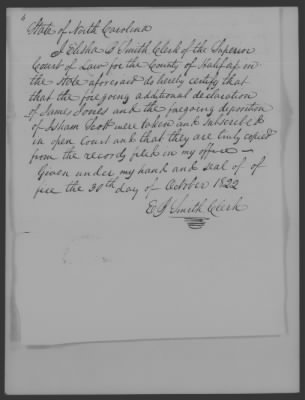 State of North Carolina
I Elisha B Smith Clerk of the Superior
Court of Law for the County of Halifax in
the State aforesaid do hereby certify that
that the foregoing additional declaration
of James Jones and the foregoing deposition
of Isham Scott were taken and subscribed
in open Court and that they are truly copied
from the records filed in my office —
Given under my hand and seal of of
fice the 30th day of October 1822
E B Smith Clerk